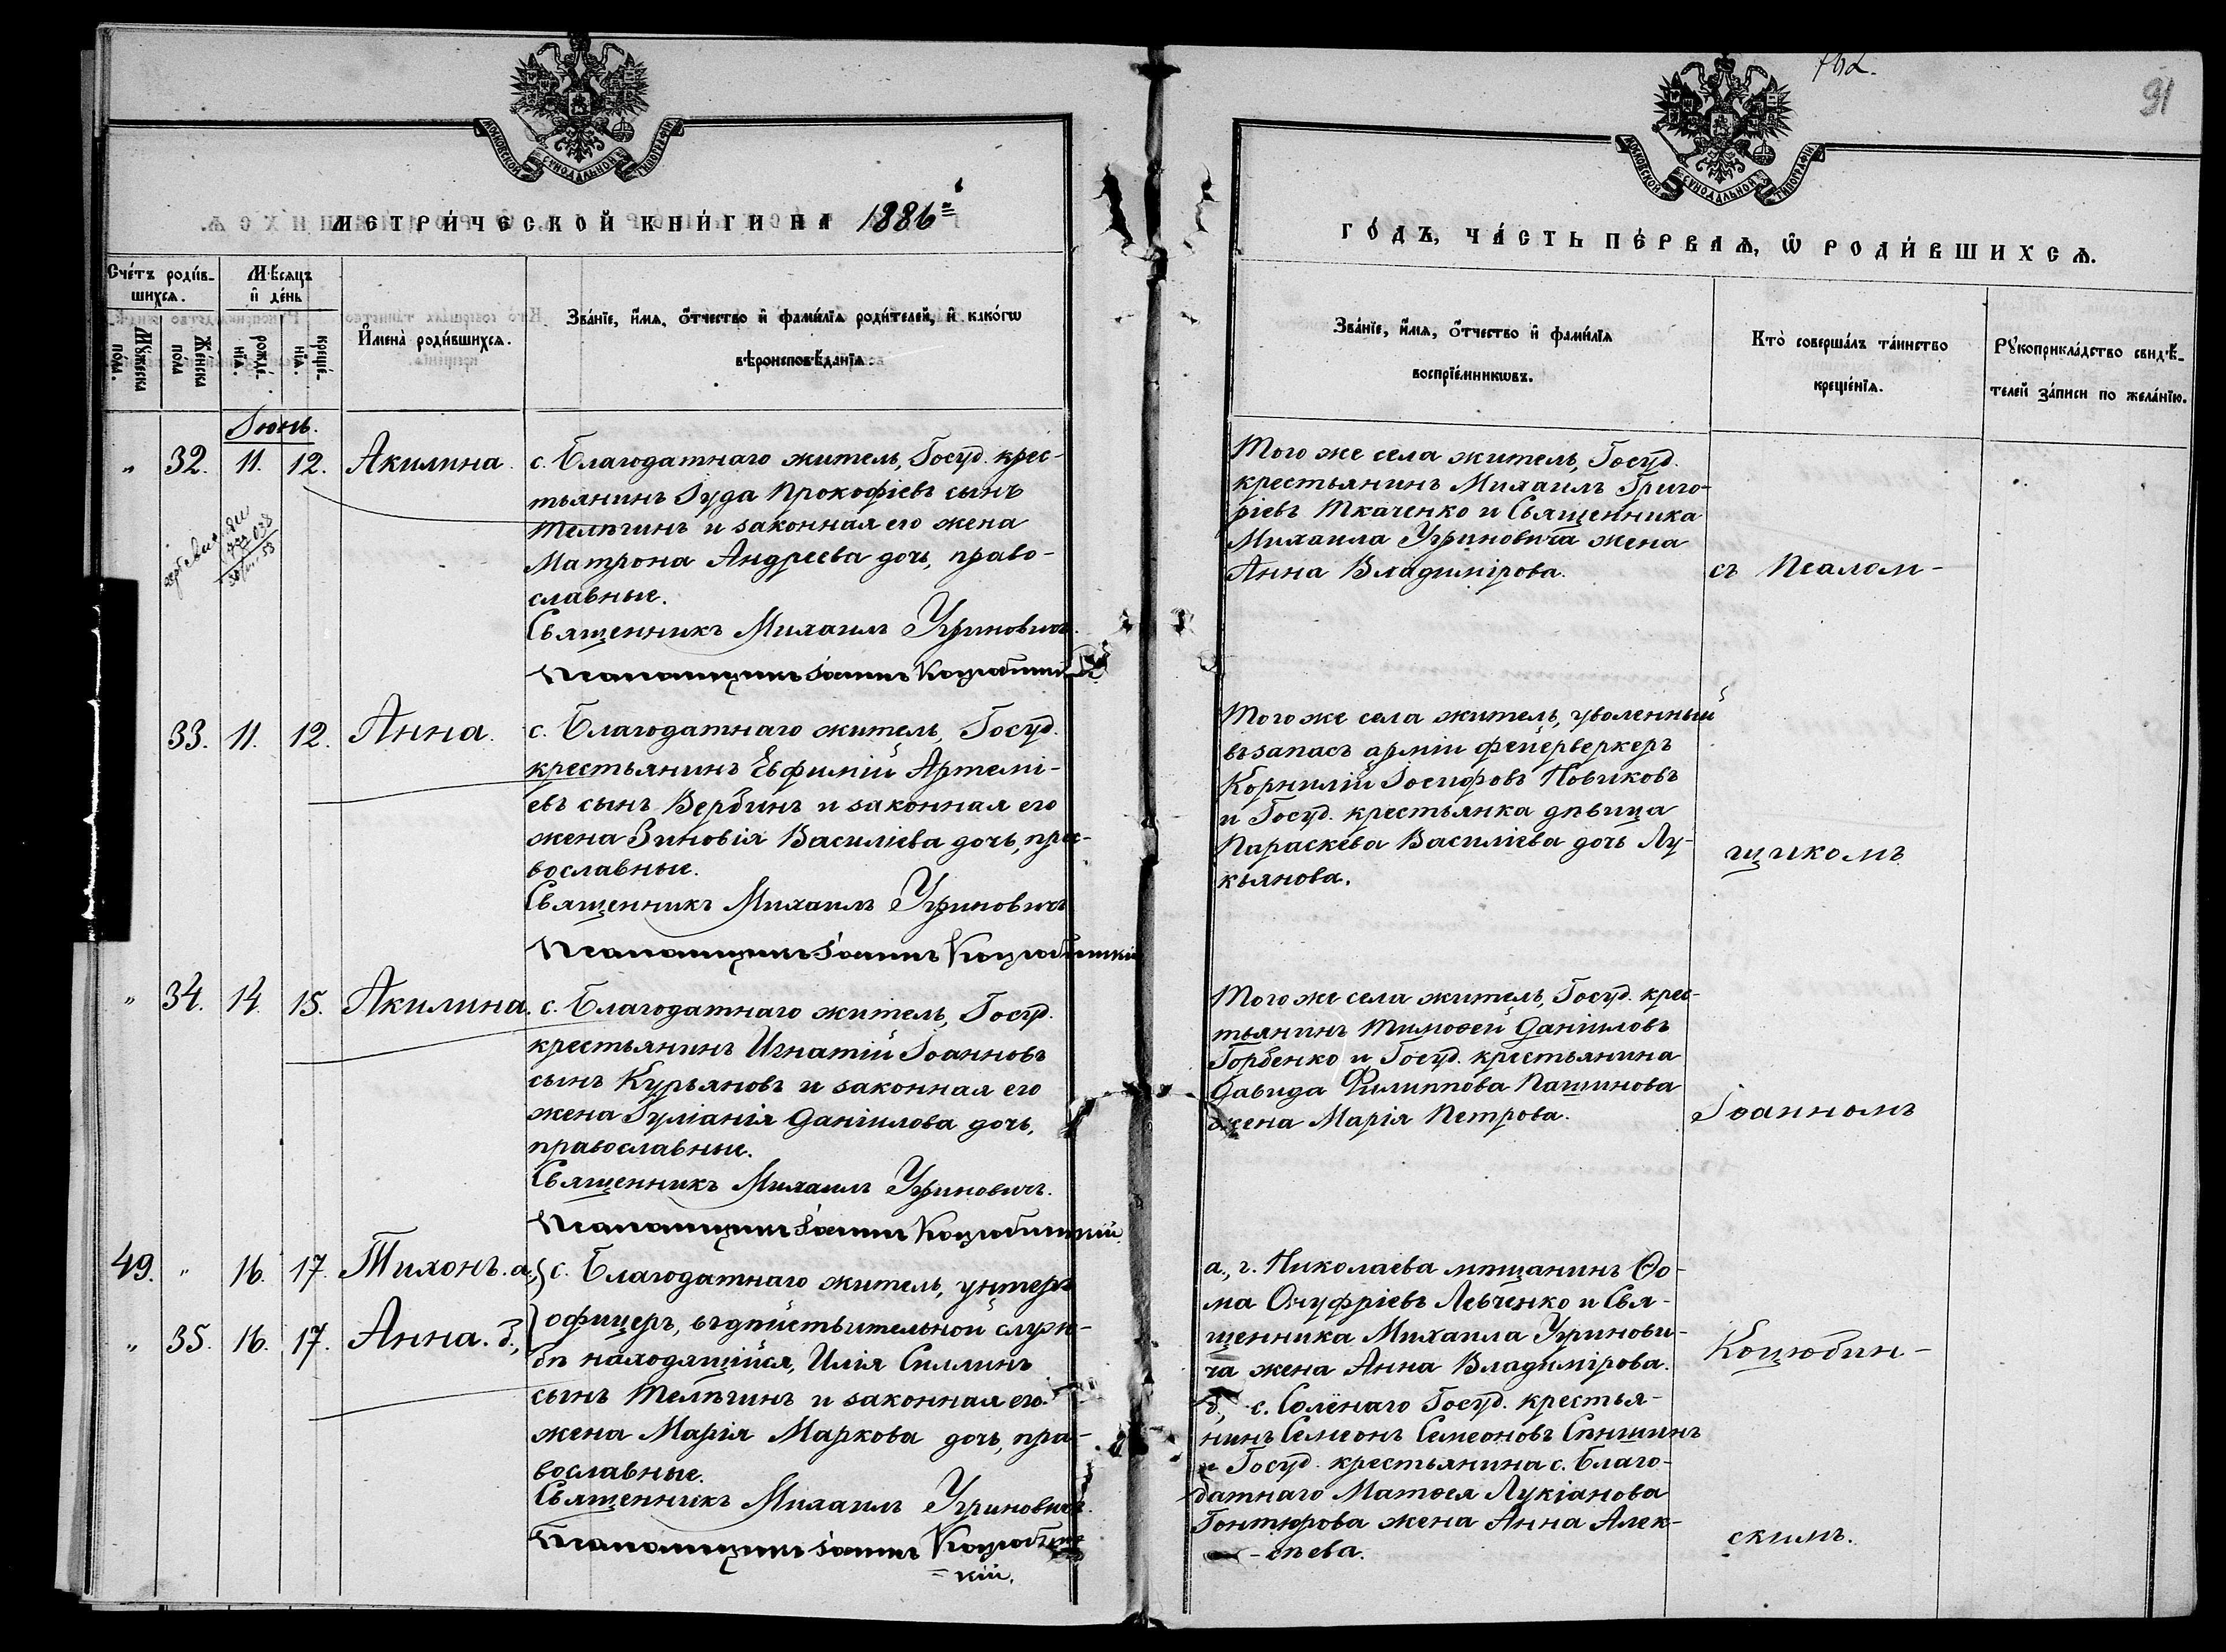 МОСКОВСКОЙ СѴНОДАЛЬНОЙ ТИПОГРАФІИ
МЕТРИ́ЧЕСКОЙ КНИ́ГИ НА 1886й
Сче́тъ роди́в-
шихсѧ.
Мѣ́сѧцъ
и҆ де́нь
Мꙋ́жеска
по́ла.
Же́нска
по́ла
рожде́-
нїѧ.
креще́-
нїѧ.
И҆мена̀ роди́вшихсѧ.
Зва́нїе, и҆́мѧ, ѻ҆́тчество и҆ фами́лїѧ роди́телей, и҆ како́гѡ
вѣроисповѣ́данїѧ.
Іюнь.
" 32. 11. 12. Акилина.
с. Благодатнаго житель, Госуд. крес-
тьянинъ Іуда Прокофіевъ сынъ
Телѣгинъ и законная его жена
Матрона Андреева дочь, право-
славные.
Священникъ Михаилъ Угриновичъ.
Псаломщикъ Іоаннъ Коцюбинскій
33. 11. 12. Анна.
с. Благодатнаго житель, Госуд.
крестьянинъ Евфимій Артемі-
евъ сынъ Вербинъ и законная его
жена Зиновія Василіева дочь, пра-
вославные.
Священникъ Михаилъ Угриновичъ
Псаломщикъ Іоаннъ Коцюбинскій
" 34. 14. 15. Акилина.
с. Благодатнаго житель, Госуд.
крестьянинъ Игнатій Іоанновъ
сынъ Курьяновъ и законная его
жена Іуліанія Даніилова дочь,
православные.
Священникъ Михаилъ Угриновичъ.
Псаломщикъ Іоаннъ Коцюбинскій.
49. " 16. 17. Тихонъ. а.,
" 35. 16. 17. Анна. б.,
с. Благодатнаго житель, унтеръ
офицеръ, въ дѣйствительной служ-
бѣ находящійся, Илія Силинъ
сынъ Телѣгинъ и законная его
жена Марія Маркова дочь, пра-
вославные.
Священникъ Михаилъ Угриновичъ.
Псаломщикъ Іоаннъ Коцюбинс-
=кій.
91
МОСКОВСКОЙ СѴНОДАЛЬНОЙ ТИПОГРАФІИ
ГО́ДЪ, ЧА́СТЬ ПЕ́РВАѦ, Ѽ РОДИ́ВШИХСѦ.
Зва́нїе, и҆́мѧ, ѻ҆́тчество и҆ фами́лїѧ
воспрїе́мникѡвъ.
Кто̀ соверша́лъ та́инство
креще́нїѧ.
Рꙋкоприкла́дство свидѣ́-
телей за́писи по жела́нїю.
Того же села житель, Госуд.
крестьянинъ Михаилъ Григо-
ріевъ Ткаченко и Священника
Михаила Угриновича жена
Анна Владимірова.
съ Псалом-
Того же села житель, уволенный
въ запасъ арміи фейерверкеръ
Корнилій Іосифовъ Новиковъ
и Госуд. крестьянка дѣвица
Параскева Василіева дочь Лу-
кьянова.
щикомъ
Того же села житель, Госуд. крес-
тьянинъ Тимоѳей Даніиловъ
Горбенко и Госуд. крестьянина
Давида Филиппова Пашинова
жена Марія Петрова.
Іоанномъ
а., г. Николаева мѣщанинъ Ѳо-
ма Онуфріевъ Левченко и Свя-
щенника Михаила Угринови-
ча жена Анна Владимірова.
б., с. Соленаго Госуд. крестья-
нинъ Семеонъ Семеоновъ Спѣшинъ
и Госуд. крестьянина с. Благо-
датнаго Матѳея Лукіанова
Гонтюрова жена Анна Алек-
-сѣева.
Коцюбин-
скимъ.